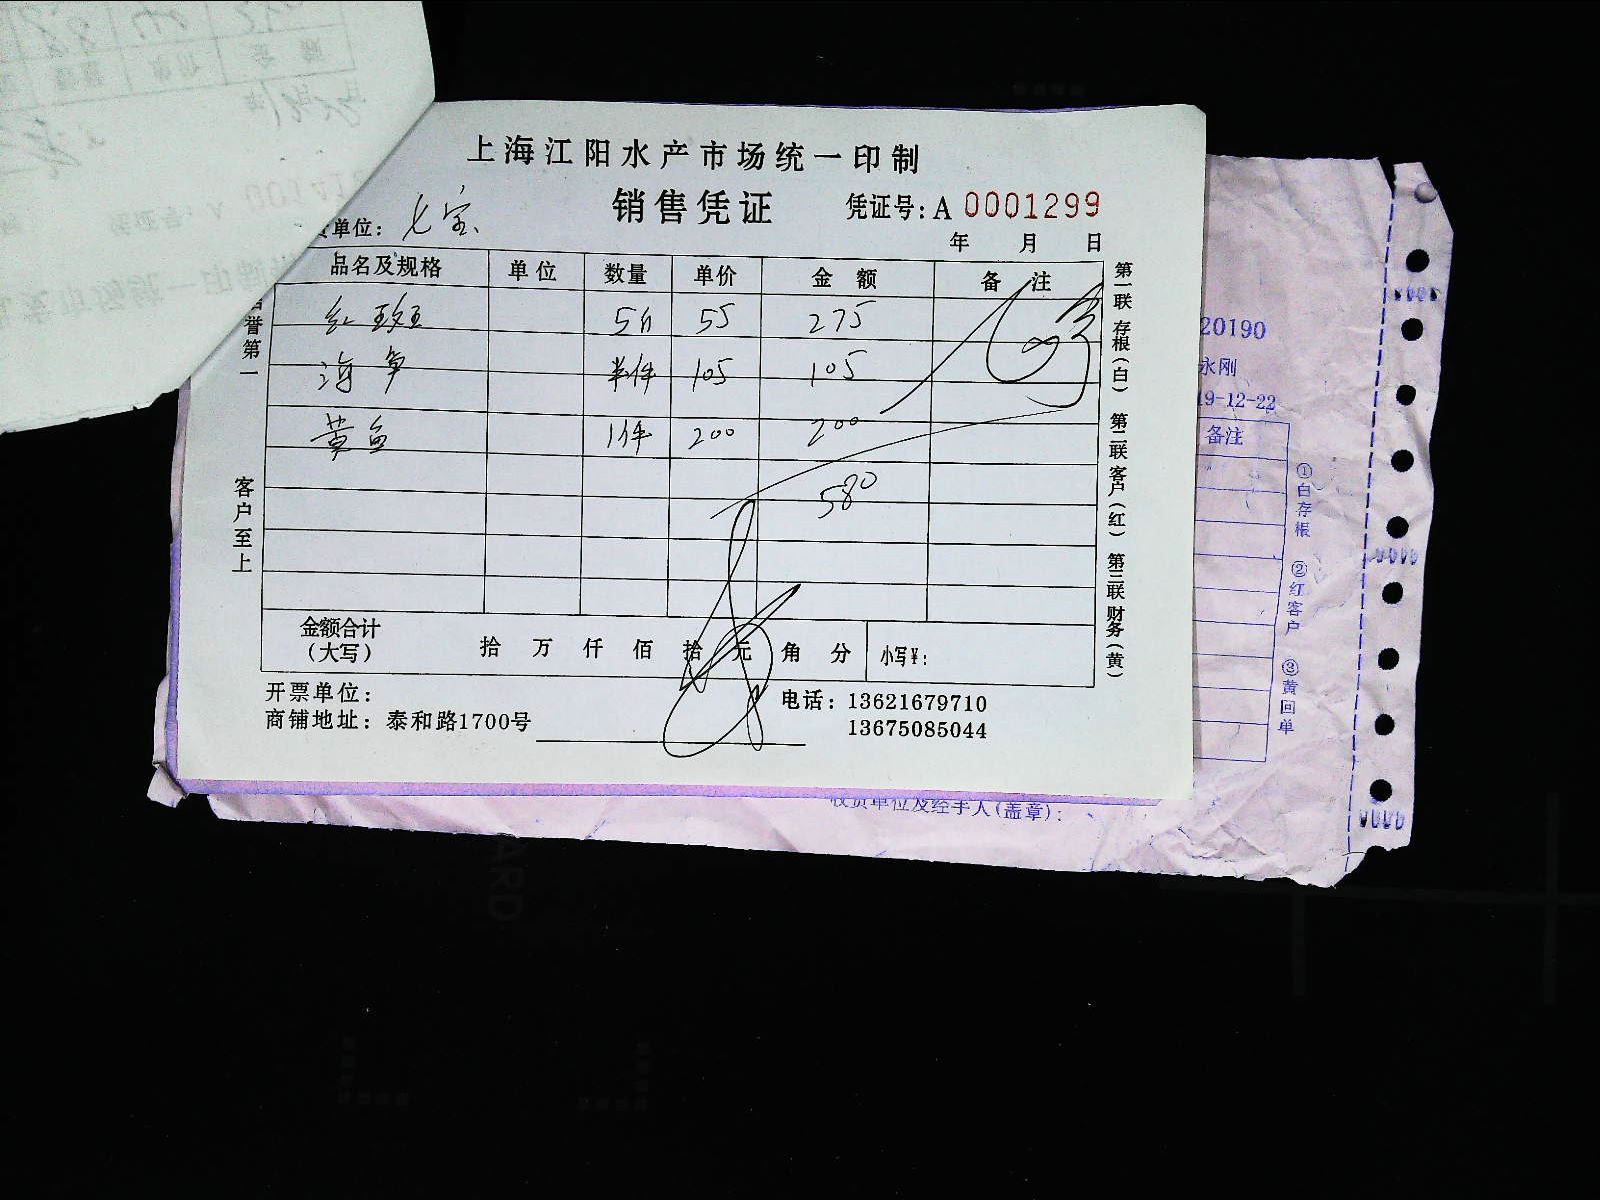 上海江阳水产市场统一印制
销售凭证
凭证号: A 0001299
单位: 七宝
年 月 日
品名及规格 单位 数量 单价 金额 备注
红斑 5斤 55 275
海 半件 105 105
黄鱼 1件 200 200
580
金额合计
(大写)
拾 万 仟 佰 拾 元 角 分 小写¥:
开票单位:
商铺地址: 泰和路1700号
电话: 13621679710
13675085044
誉第一
客户至上
第一联 存根(白) 第二联 客户(红) 第三联 财务(黄)
20190
永刚
19-12-22
备注
①白存根 ②红客户 ③黄回单
收货单位及经手人(盖章):